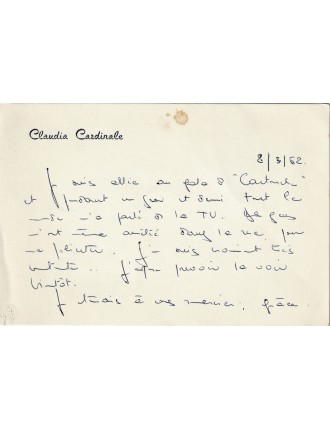 Claudia Cardinale
8/3/62.
Je suis allée au gala de "Cartouche"
et pendant un jour et demi tout le
monde m'a parlé de la TV. Des gens
m'ont même arrêté dans la rue pour
me féliciter. J'en suis vraiment très
contente.. J'espère pouvoir la voir
bientôt.
Je tenais à vous remercier, grâce